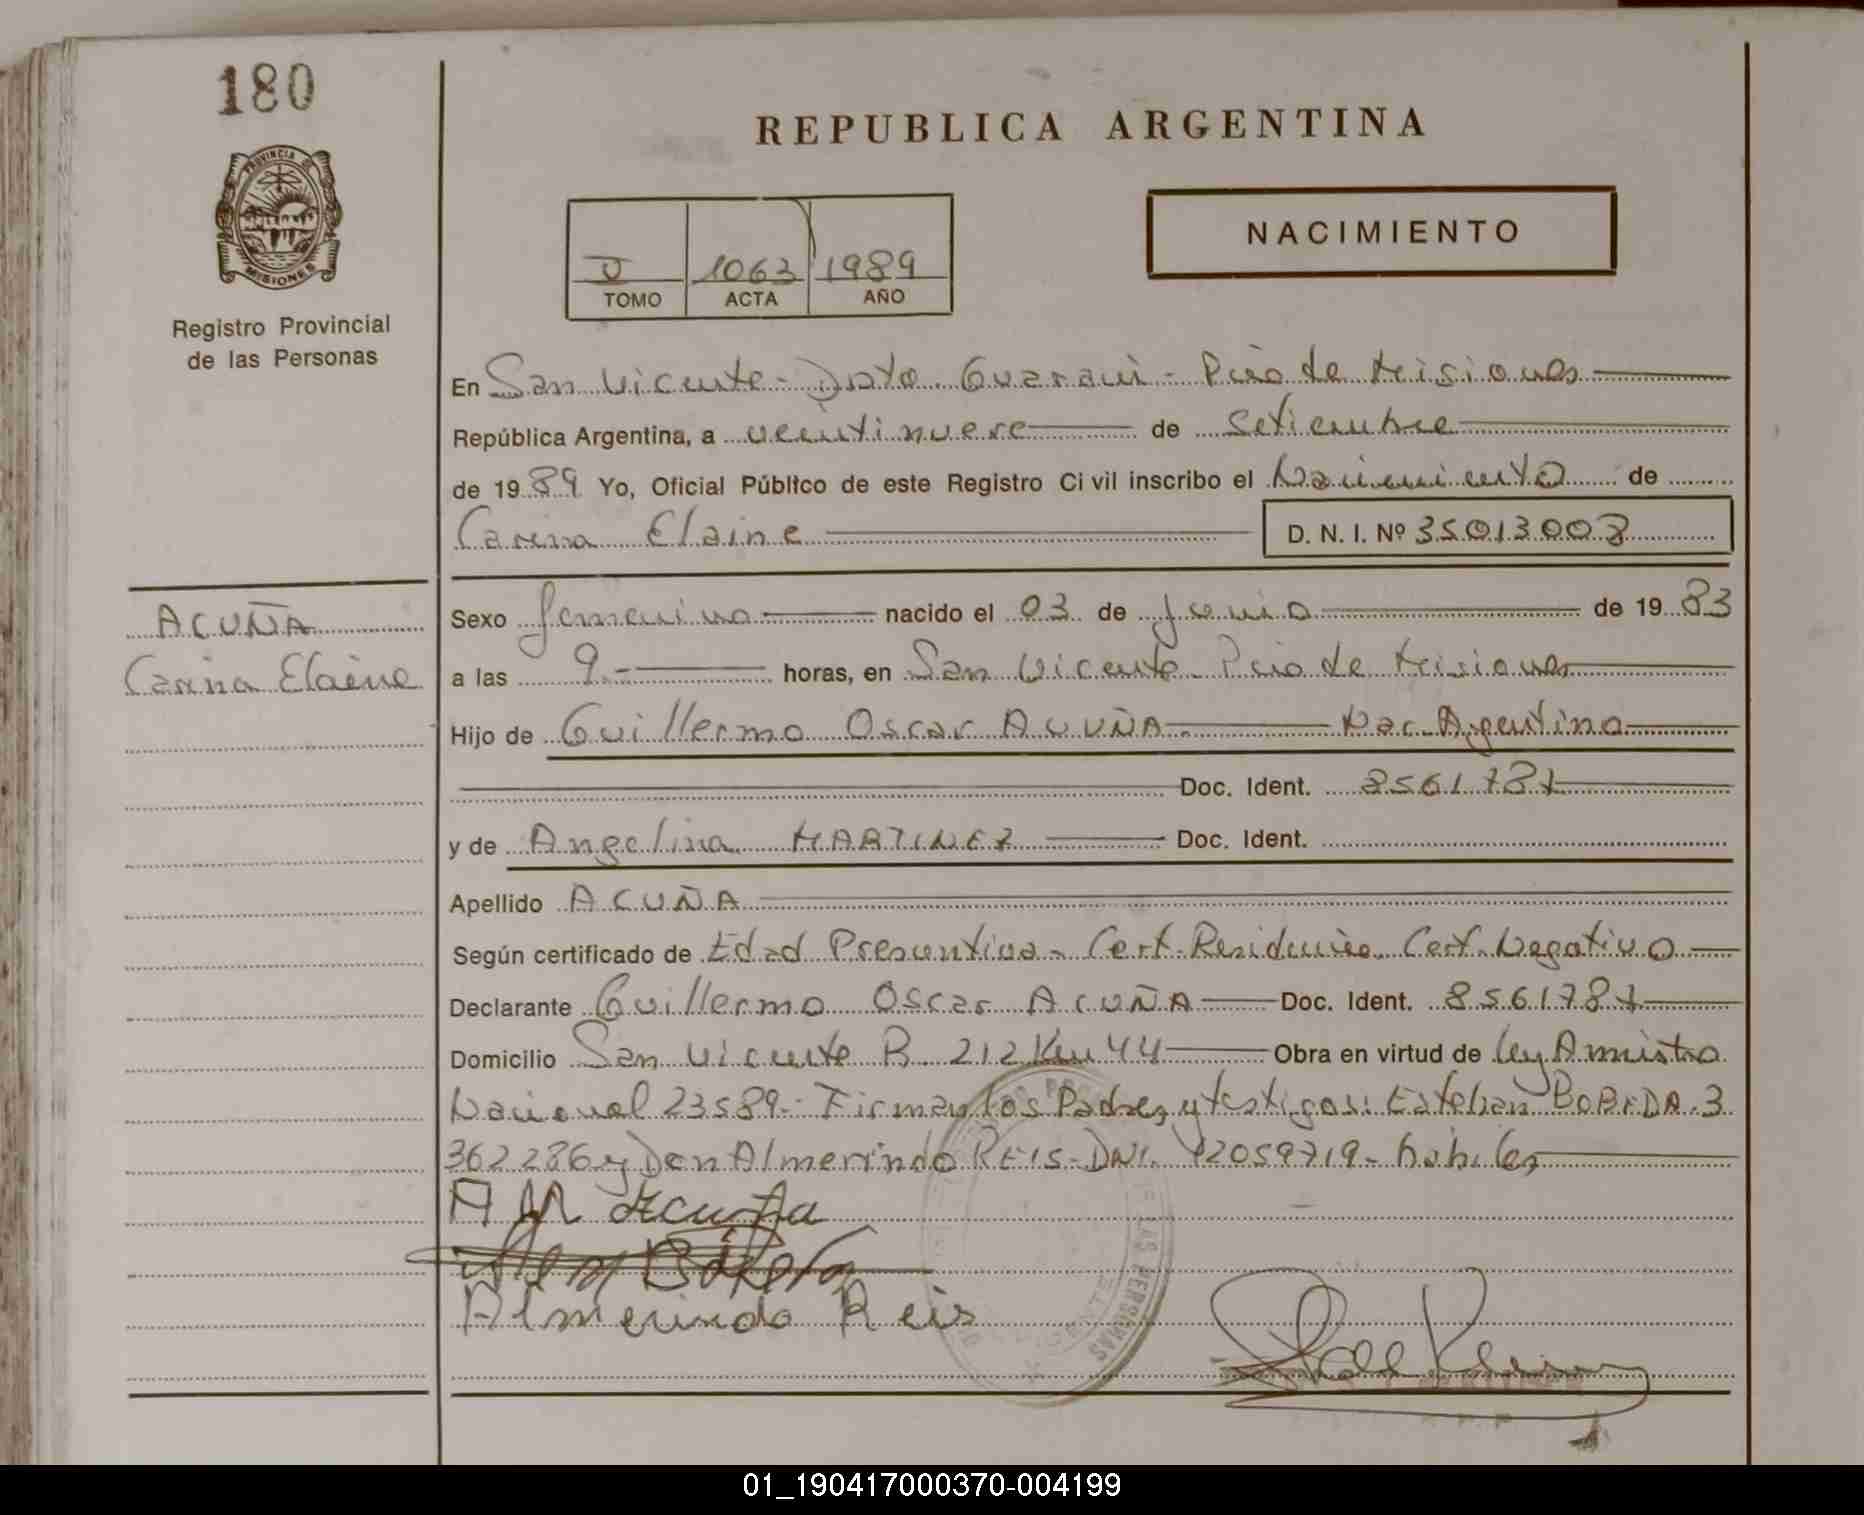 180
REPUBLICA ARGENTINA
PROVINCIA DE
MISIONES
Registro Provincial
de las Personas
V 1063 1989
TOMO ACTA AÑO
NACIMIENTO
En San Vicente - Dpto. Guaraní - Pcia de Misiones
República Argentina, a veintinueve de Setiembre
de 1989 Yo, Oficial Público de este Registro Civil inscribo el Nacimiento de
Carina Elaine D. N. I. Nº 35013003
ACUÑA
Carina Elaine
Sexo femenino nacido el 03 de Junio de 1983
a las 9.- horas, en San Vicente - Pcia de Misiones
Hijo de Guillermo Oscar ACUÑA.- Nac. Argentino
Doc. Ident. 8561787
y de Angelina MARTINEZ Doc. Ident.
Apellido ACUÑA
Según certificado de Edad Presuntiva - Cert. Residencia. Cert. Negativo
Declarante Guillermo Oscar ACUÑA Doc. Ident. 8561787
Domicilio San Vicente R. 212 Km 44 Obra en virtud de Ley Amistia
Nacional 23589.- Firman los Padres y testigos: Esteban 3
362286 y Don Almerindo REIS - DNI. 12059719 - habiles
A M Acuña
Almerindo Reis
DE LAS PERSONAS
01_190417000370-004199